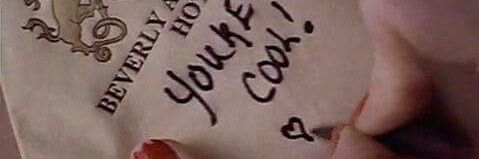 BEVERLY A
HO
YOU'RE
COOL!